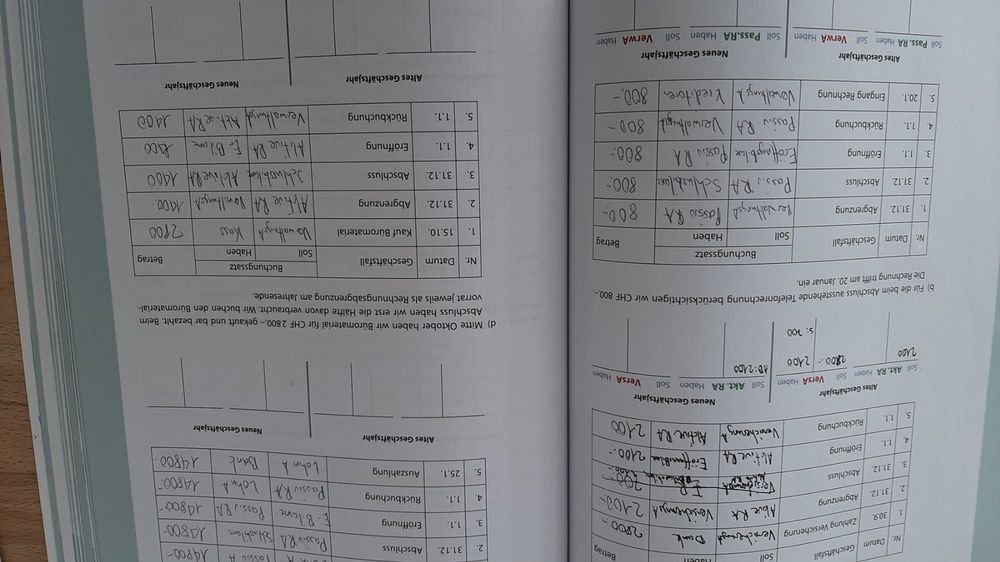 Nr. Datum Geschäftsfall Soll Haben Betrag
1. 30.9. Zahlung Versicherung VersicherungsA Bank 2800.-
2. 31.12. Abgrenzung Aktive RA VersicherungsA 2100.-
3. 31.12. Abschluss
4. 1.1. Eröffnung Aktive RA 2100.-
5. 1.1. Rückbuchung VersicherungsA Aktive RA 2100
Altes Geschäftsjahr Neues Geschäftsjahr
Soll Akt. RA Haben Soll VersA Haben Soll Akt. RA Haben Soll VersA Haben
2100 2800.- 2100 AB: 2100
S: 700
b) Für die beim Abschluss ausstehende Telefonrechnung berücksichtigen wir CHF 800.–.
Die Rechnung trifft am 20. Januar ein.
Nr. Datum Geschäftsfall Buchungssatz Betrag
Soll Haben
1. 31.12. Abgrenzung VerwaltungsA Passiv RA 800.-
2. 31.12. Abschluss Passiv RA Schlussbilanz 800.-
3. 1.1. Eröffnung Passiv RA 800.-
4. 1.1. Rückbuchung Passiv RA VerwaltungsA 800.-
5. 20.1. Eingang Rechnung VerwaltungsA Kreditoren 800.-
Altes Geschäftsjahr Neues Geschäftsjahr
Soll Pass. RA Haben Soll VerwA Haben Soll Pass. RA Haben Soll VerwA Haben
2. 31.12. Abschluss Passiv RA 14800.-
3. 1.1. Eröffnung E-Bilanz Passiv RA 14800.-
4. 1.1. Rückbuchung Passiv RA Lohn A 14800.-
5. 25.1. Auszahlung Lohn A Bank 14800.-
Altes Geschäftsjahr Neues Geschäftsjahr
d) Mitte Oktober haben wir Büromaterial für CHF 2800.– gekauft und bar bezahlt. Beim
Abschluss haben wir erst die Hälfte davon verbraucht. Wir buchen den Büromaterial-
vorrat jeweils als Rechnungsabgrenzung am Jahresende.
Nr. Datum Geschäftsfall Buchungssatz Betrag
Soll Haben
1. 15.10. Kauf Büromaterial VerwaltungsA Kass 2800
2. 31.12. Abgrenzung Aktive RA VerwaltungsA 1400.
3. 31.12. Abschluss Schlussbilanz Aktive RA 1400
4. 1.1. Eröffnung Aktive RA E-Bilanz 1400
5. 1.1. Rückbuchung VerwaltungsA Aktive RA 1400
Altes Geschäftsjahr Neues Geschäftsjahr